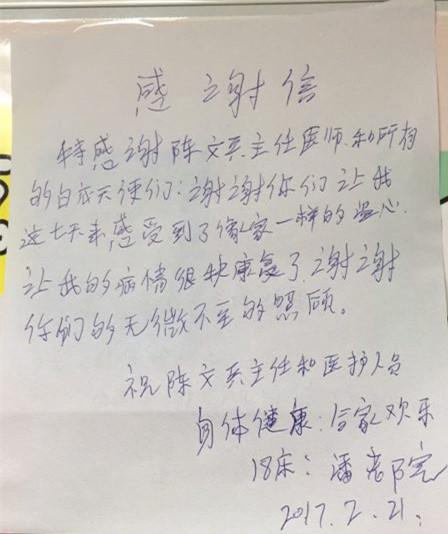 感谢信
特感谢陈文兵主任医师.和所有
的白衣天使们:谢谢你们让我
这七天来感受到了像家一样的温心.
让我的病情很快康复了.谢谢
你们的无微不至的照顾。
祝陈文兵主任和医护人员
身体健康:合家欢乐
18床:潘老
2017.2.21.